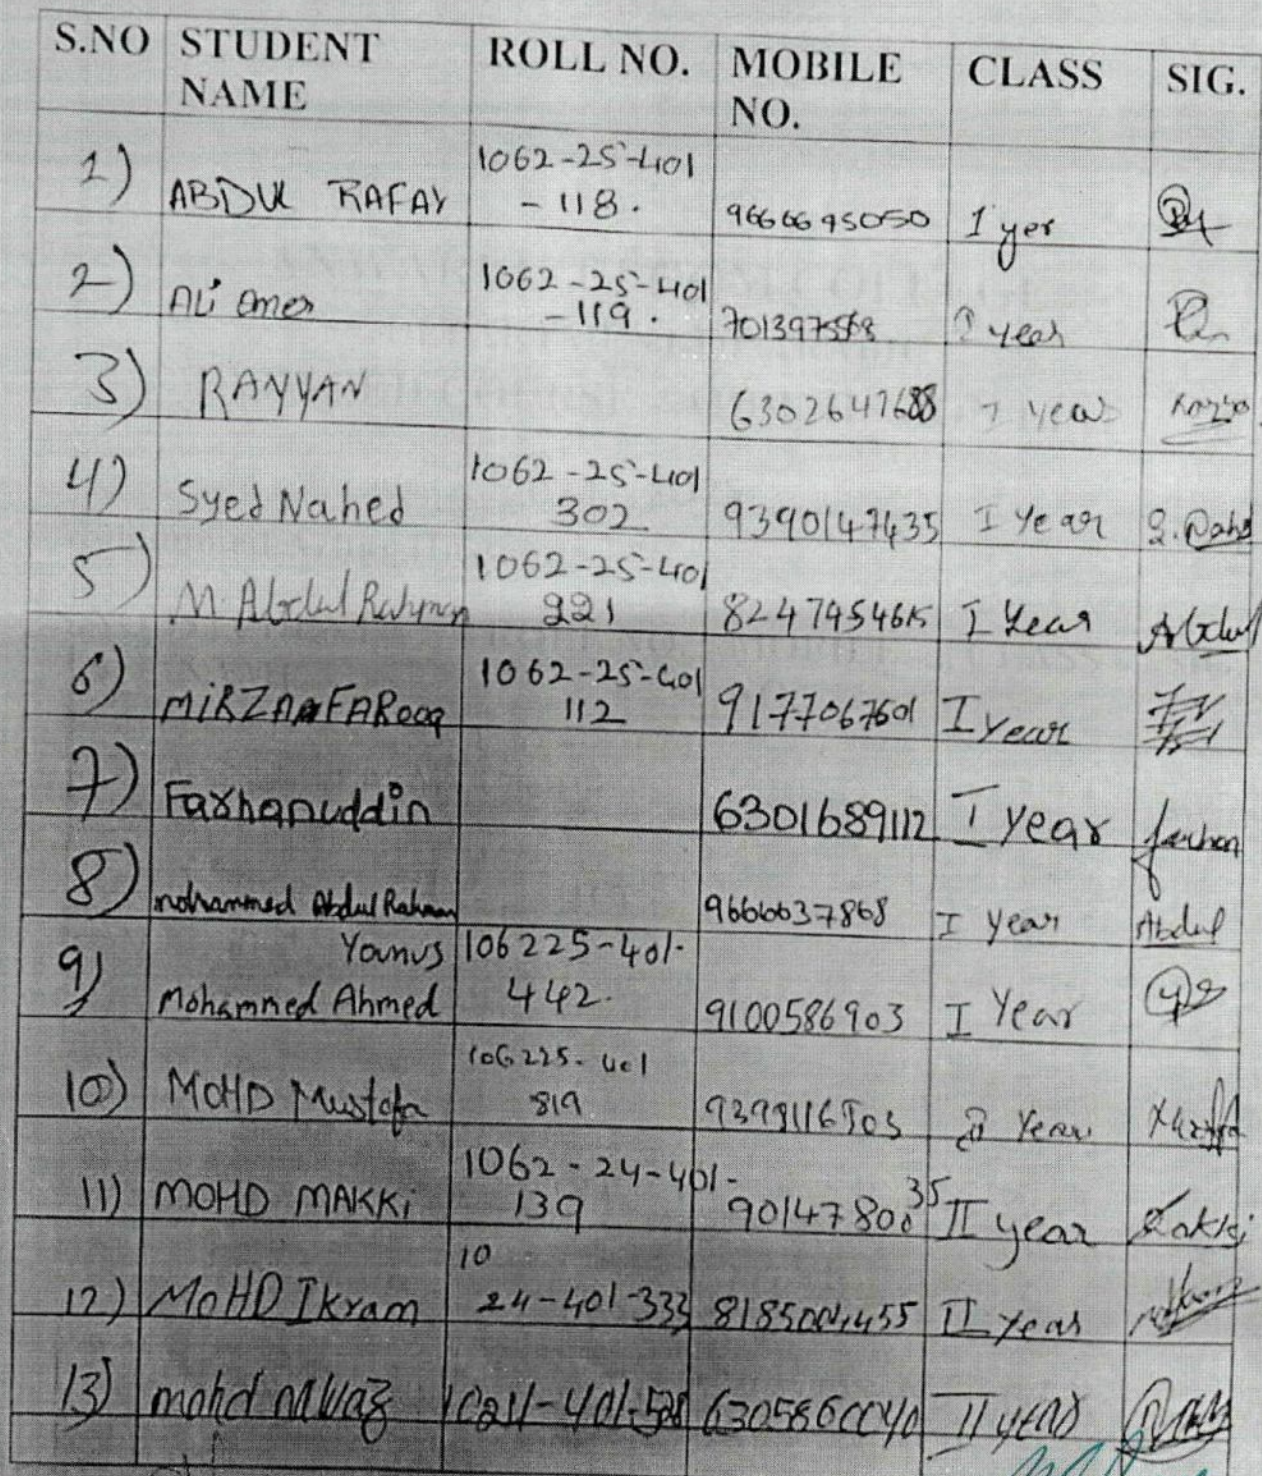 S.NO STUDENT NAME ROLL NO. MOBILE NO. CLASS SIG.
1) ABDUL RAFAY 1062-25-401 -118. 9666695050 I yer
2) Ali Omer 1062-25-401 -119. I year
3) RAYYAN 6302647688 I year
4) Syed Nahed 1062-25-401 302 9390147435 I Year
5) M. Abdul Rahman 1062-25-401 221 8247954615 I Year Abdul
6) MIRZA FAROOQ 1062-25-401 112 9177067601 I year
7) Farhanuddin 6301689112 I year farhan
8) mohammed Abdul Rahman 9666637868 I year Abdul
9) Younus Mohammed Ahmed 106225-401- 442. 9100586903 I Year
10) MOHD Mustafa 106225-401 819 Year
11) MOHD MAKKi 1062-24-401- 139 II year Makki
12) MOHD Ikram 10 24-401-333 II year
13) mohd nawaz II year